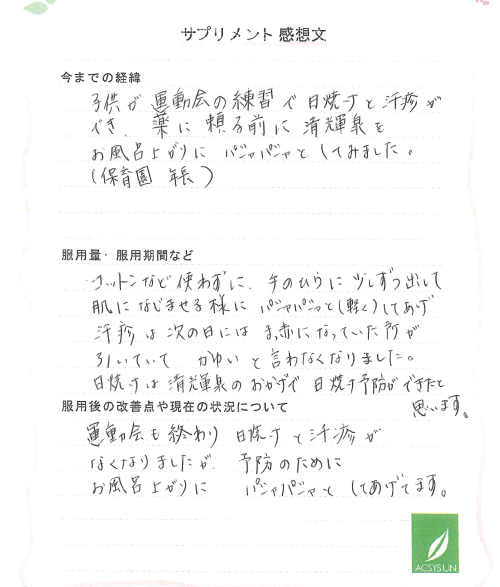 サプリメント 感想文
今までの経緯
子供が 運動会の練習で日焼けと汗疹が
でき、薬に頼る前に清輝泉を
お風呂上がりに パシャパシャとしてみました。
(保育園 年長)
服用量・服用期間など
コットンなど使わずに、手のひらに少しずつ出して
肌になじませる様に パシャパシャと(軽く)してあげ
汗疹は次の日には まっ赤になっていた所が
引いていて かゆいと言わなくなりました。
日焼けは清輝泉のおかげで 日焼け予防ができたと
思います。
服用後の改善点や現在の状況について
運動会も終わり 日焼けと汗疹が
なくなりましたが、予防のために
お風呂上がりに パシャパシャと してあげてます。
ACSYSUN